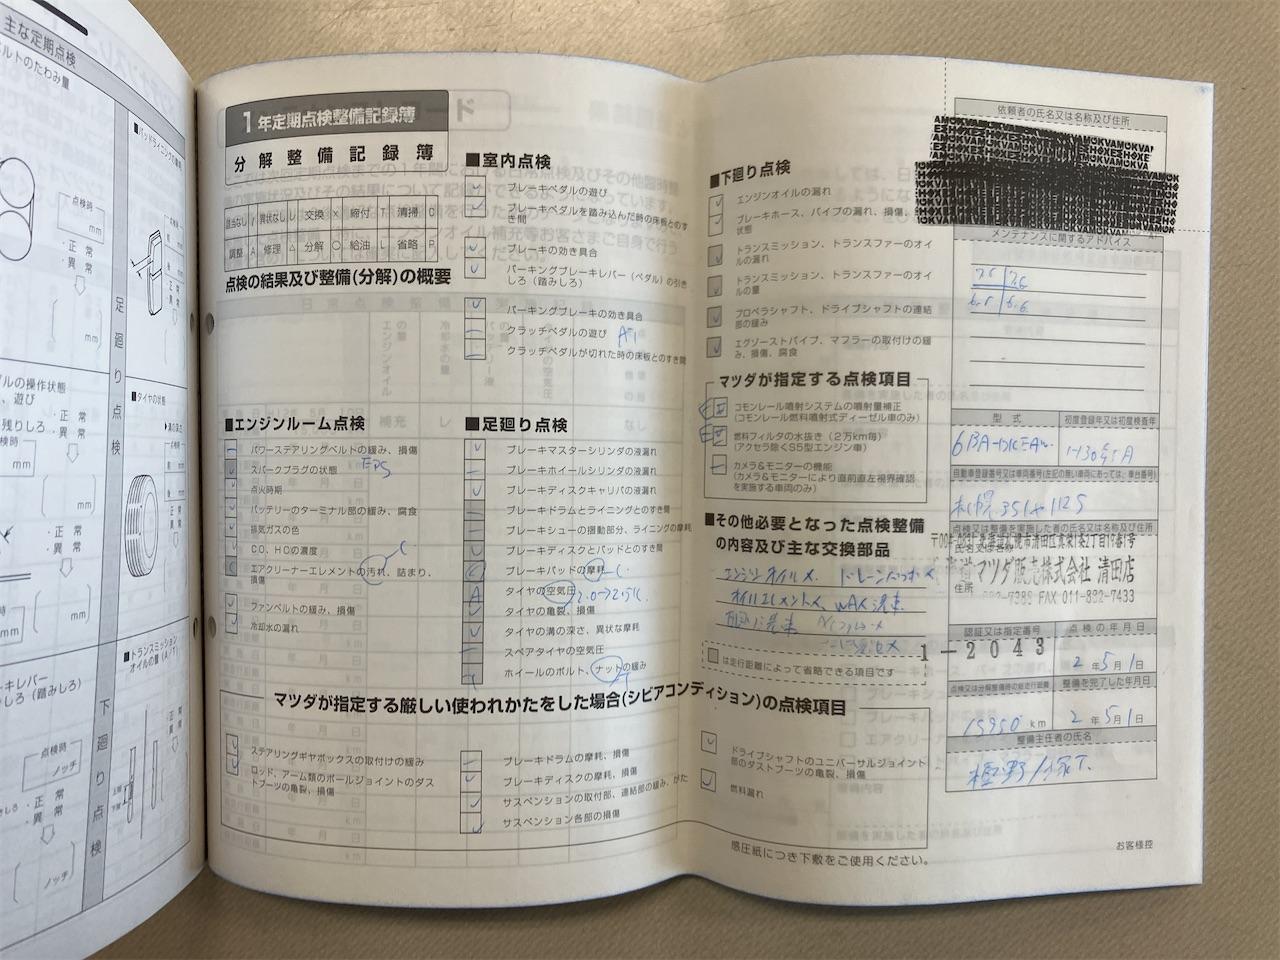 主な定期点検
ベルトのたわみ量
点検時
・正 常
・異 常
mm
■パッドライニングの摩耗
足廻り点検
mm
ルの操作状態
、遊び
・正 常
残りしろ
・異 常
検時
mm
■タイヤの状態
・正 常
・異 常
mm
■トランスミッション
オイルの量(A/T)
キレバー
しろ(踏みしろ)
点検時
ノッチ
・正 常
・異 常
下廻り点検
1年定期点検整備記録簿
分解整備記録簿
該当なし / 異状なし レ 交換 × 締付 T 清掃 C
調整 A 修理 △ 分解 ○ 給油 L 省略 P
点検の結果及び整備(分解)の概要
■エンジンルーム点検
パワーステアリングベルトの緩み、損傷
EPS
スパークプラグの状態
点火時期
バッテリーのターミナル部の緩み、腐食
排気ガスの色
CO、HCの濃度
エアクリーナーエレメントの汚れ、詰まり、
損傷
ファンベルトの緩み、損傷
冷却水の漏れ
■室内点検
ブレーキペダルの遊び
ブレーキペダルを踏み込んだ時の床板とのす
き間
ブレーキの効き具合
パーキングブレーキレバー(ペダル)の引き
しろ(踏みしろ)
パーキングブレーキの効き具合
クラッチペダルの遊び
クラッチペダルが切れた時の床板とのすき間
■足廻り点検
ブレーキマスターシリンダの液漏れ
ブレーキホイールシリンダの液漏れ
ブレーキディスクキャリパの液漏れ
ブレーキドラムとライニングとのすき間
ブレーキシューの摺動部分、ライニングの摩耗
ブレーキディスクとパッドとのすき間
ブレーキパッドの摩耗
タイヤの空気圧 2.0→2.5K
タイヤの亀裂、損傷
タイヤの溝の深さ、異状な摩耗
スペアタイヤの空気圧
ホイールのボルト、ナットの緩み
マツダが指定する厳しい使われかたをした場合(シビアコンディション)の点検項目
ステアリングギヤボックスの取付けの緩み
ロッド、アーム類のボールジョイントのダス
トブーツの亀裂、損傷
ブレーキドラムの摩耗、損傷
ブレーキディスクの摩耗、損傷
サスペンションの取付部、連結部の緩み、がた
サスペンション各部の損傷
ドライブシャフトのユニバーサルジョイント
部のダストブーツの亀裂、損傷
燃料漏れ
■下廻り点検
エンジンオイルの漏れ
ブレーキホース、パイプの漏れ、損傷、
状態
トランスミッション、トランスファーのオイ
ルの漏れ
トランスミッション、トランスファーのオイ
ルの量
プロペラシャフト、ドライブシャフトの連結
部の緩み
エグゾーストパイプ、マフラーの取付けの緩
み、損傷、腐食
マツダが指定する点検項目
コモンレール噴射システムの噴射量補正
(コモンレール燃料噴射式ディーゼル車のみ)
燃料フィルタの水抜き(2万km毎)
(アクセラ除くS5型エンジン車)
カメラ&モニターの機能
(カメラ&モニターにより直前直左視界確認
を実施する車両のみ)
■その他必要となった点検整備
の内容及び主な交換部品
エンジンオイル× ドレーンパッキン×
オイルエレメント×
は走行距離によって省略できる項目です
感圧紙につき下敷をご使用ください。
依頼者の氏名又は名称及び住所
メンテナンスに関するアドバイス
7.5 7.6
6.5 6.6
型 式
初度登録年又は初度検査年
6BA-DKEAW
H30年5月
自動車登録番号又は車両番号(左記の無い車両にあっては、車台番号)
点検又は整備を実施した者の氏名又は名称及び住所
氏名又は名称
マツダ販売株式会社 清田店
住所
882-7388 FAX 011-882-7433
認証又は指定番号
1-2043
点検の年月日
2年5月1日
点検又は分解整備時の総走行距離
15950 km
整備を完了した年月日
2年5月1日
整備主任者の氏名
お客様控